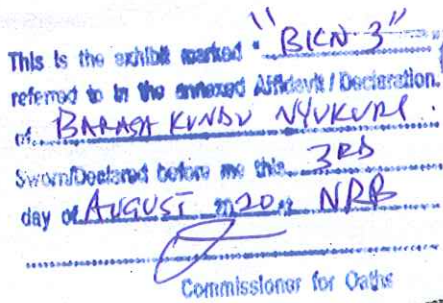 This is the exhibit marked "BKN 3"
referred to in the annexed Affidavit / Declaration
of BARASA KUNDU NYUKURI.
Sworn/Declared before me this 3RD
day of AUGUST 20 NRB
Commissioner for Oaths